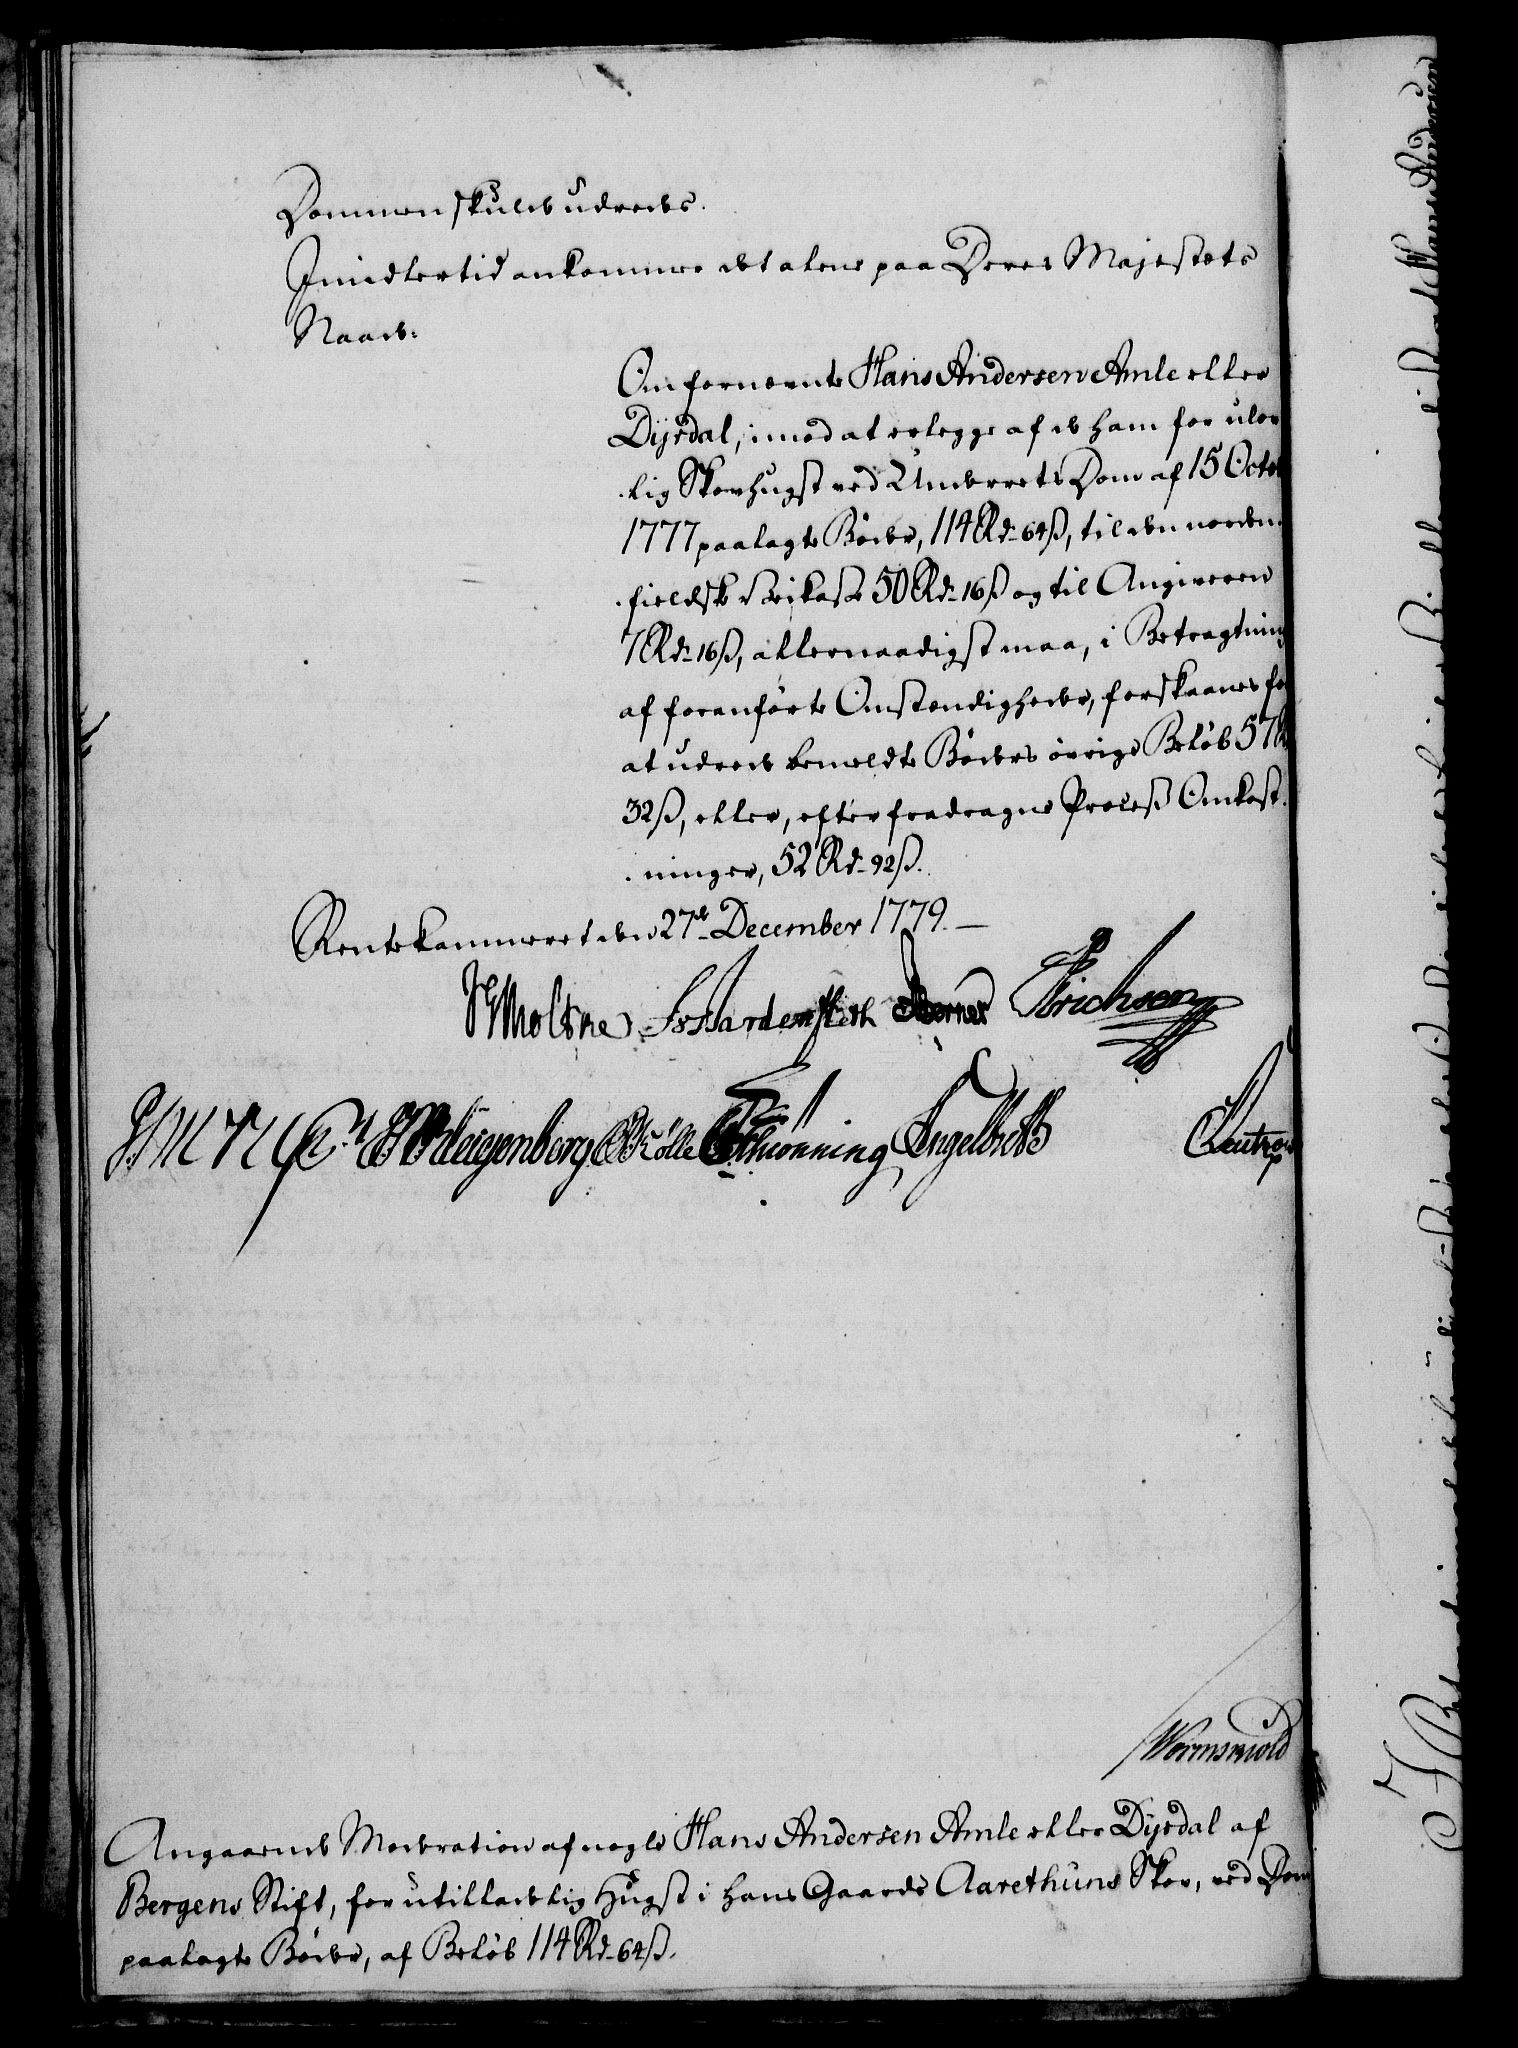 Dommen skulde udredes.
Imidlertid ankommer det alene paa Deres Majestæts
Naade:
Om fornævnte Hans Andersen Amle eller
Dijrdal, imod at erlegge af de ham for ulov
lig Skovhugst ved Underrets Dom af 15 Octob
1777 paalagte Bøder, 114 Rd. 64 ß, til den norden
fieldske Veikasse 50 Rd. 16 ß og til Angiveren
7 Rd. 16 ß, allernaadigst maa, i Betragtning
af foranførte Omstændigheder, forskaanes fo
at udrede bemeldte Bøders øvrige Beløb 57 R
32 ß, eller, efter fradragne Proces Omkost
ninger, 52 Rd. 92 ß.
Rentekammeret den 27de December 1779.
JGMoltke HSchönning Erichsen
Engelbrett
Wormskiold
Angaaende Moderation af nogle Hans Andersen Amle eller Dijrdal af
Bergens Stift, for utilladelig Hugst i hans Gaards Aarethuns Skov, ved Dom
paalagte Bøder, af Beløb 114 Rd. 64 ß.